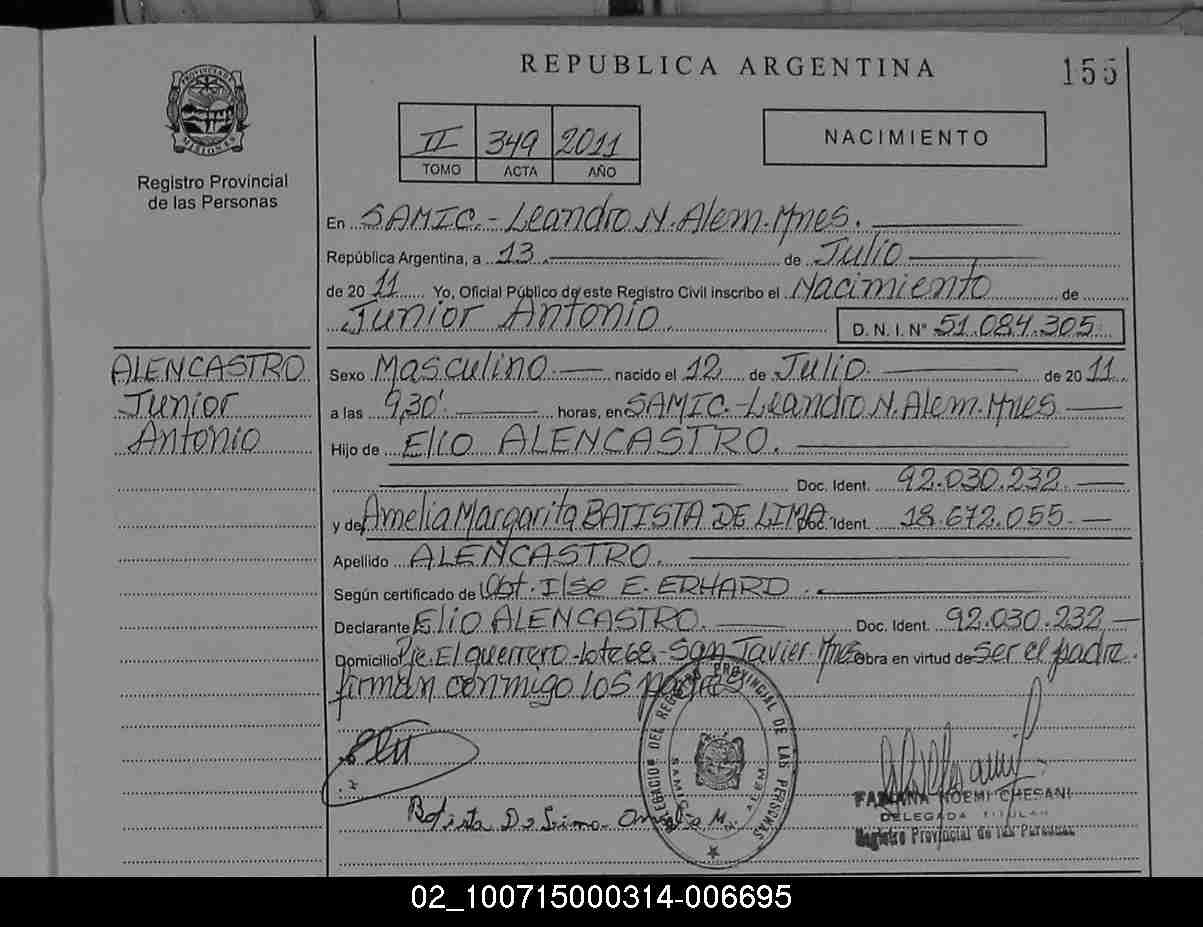 REPUBLICA ARGENTINA
155
PROVINCIA DE MISIONES
Registro Provincial
de las Personas
II 349 2011
TOMO ACTA AÑO
NACIMIENTO
En SAMIC.- Leandro N. Alem. Mnes.
República Argentina, a 13 de Julio
de 2011 Yo, Oficial Público de este Registro Civil inscribo el Nacimiento de
Junior Antonio
D. N. I. Nº 51.084.305
ALENCASTRO
Junior
Antonio
Sexo Masculino nacido el 12 de Julio de 2011
a las 9,30' horas, en SAMIC.- Leandro N. Alem. Mnes
Hijo de Elio ALENCASTRO.
Doc. Ident. 92.030.232
y de Amelia Margarita BATISTA DE LIMA Doc. Ident. 18.672.055
Apellido ALENCASTRO.
Según certificado de Obst. Ilse E. ERHARD.
Declarante Elio ALENCASTRO. Doc. Ident. 92.030.232
Domicilio Pje. El guerrero - lote 68.- San Javier Mnes Obra en virtud de ser el padre.
firman conmigo los padres
DELEGACION DEL REGISTRO PROVINCIAL DE LAS PERSONAS
SAMIC N. ALEM
Batista De Lima
FABIANA NOEMI CHESANI
DELEGADA TITULAR
Registro Provincial de las Personas
02_100715000314-006695